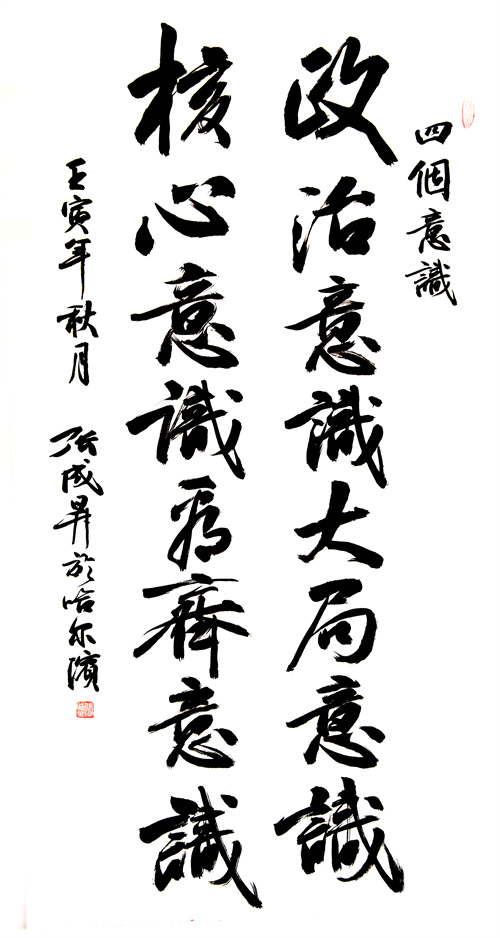 四個意識
政治意識大局意識
核心意識看齊意識
壬寅年秋月 張成昇於哈尔濱